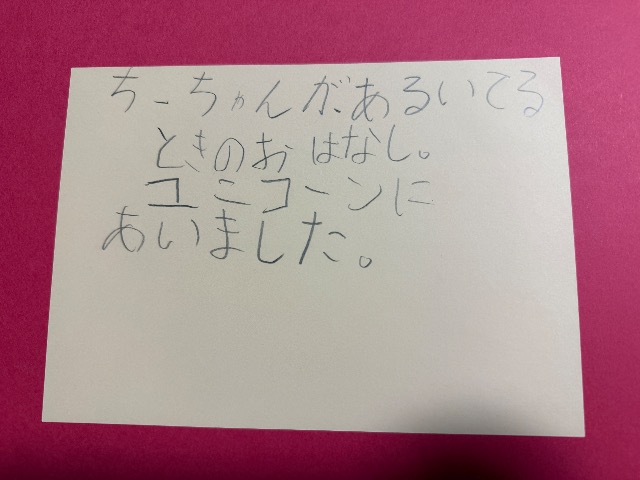 ちーちゃんがあるいてる
ときのおはなし。
ユニコーンに
あいました。